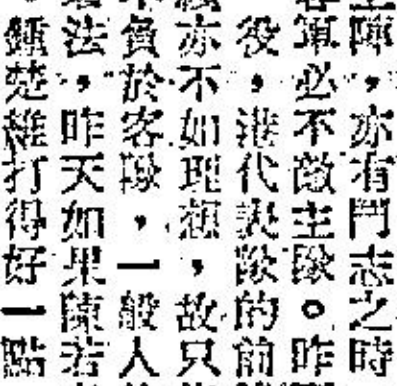 陣，亦有鬥志之時
軍必不敵主隊。昨
役，港代表隊的前
亦不如理想，故只
負於客隊，一般人
法，昨天如果陳若
鍾楚維打得好一點